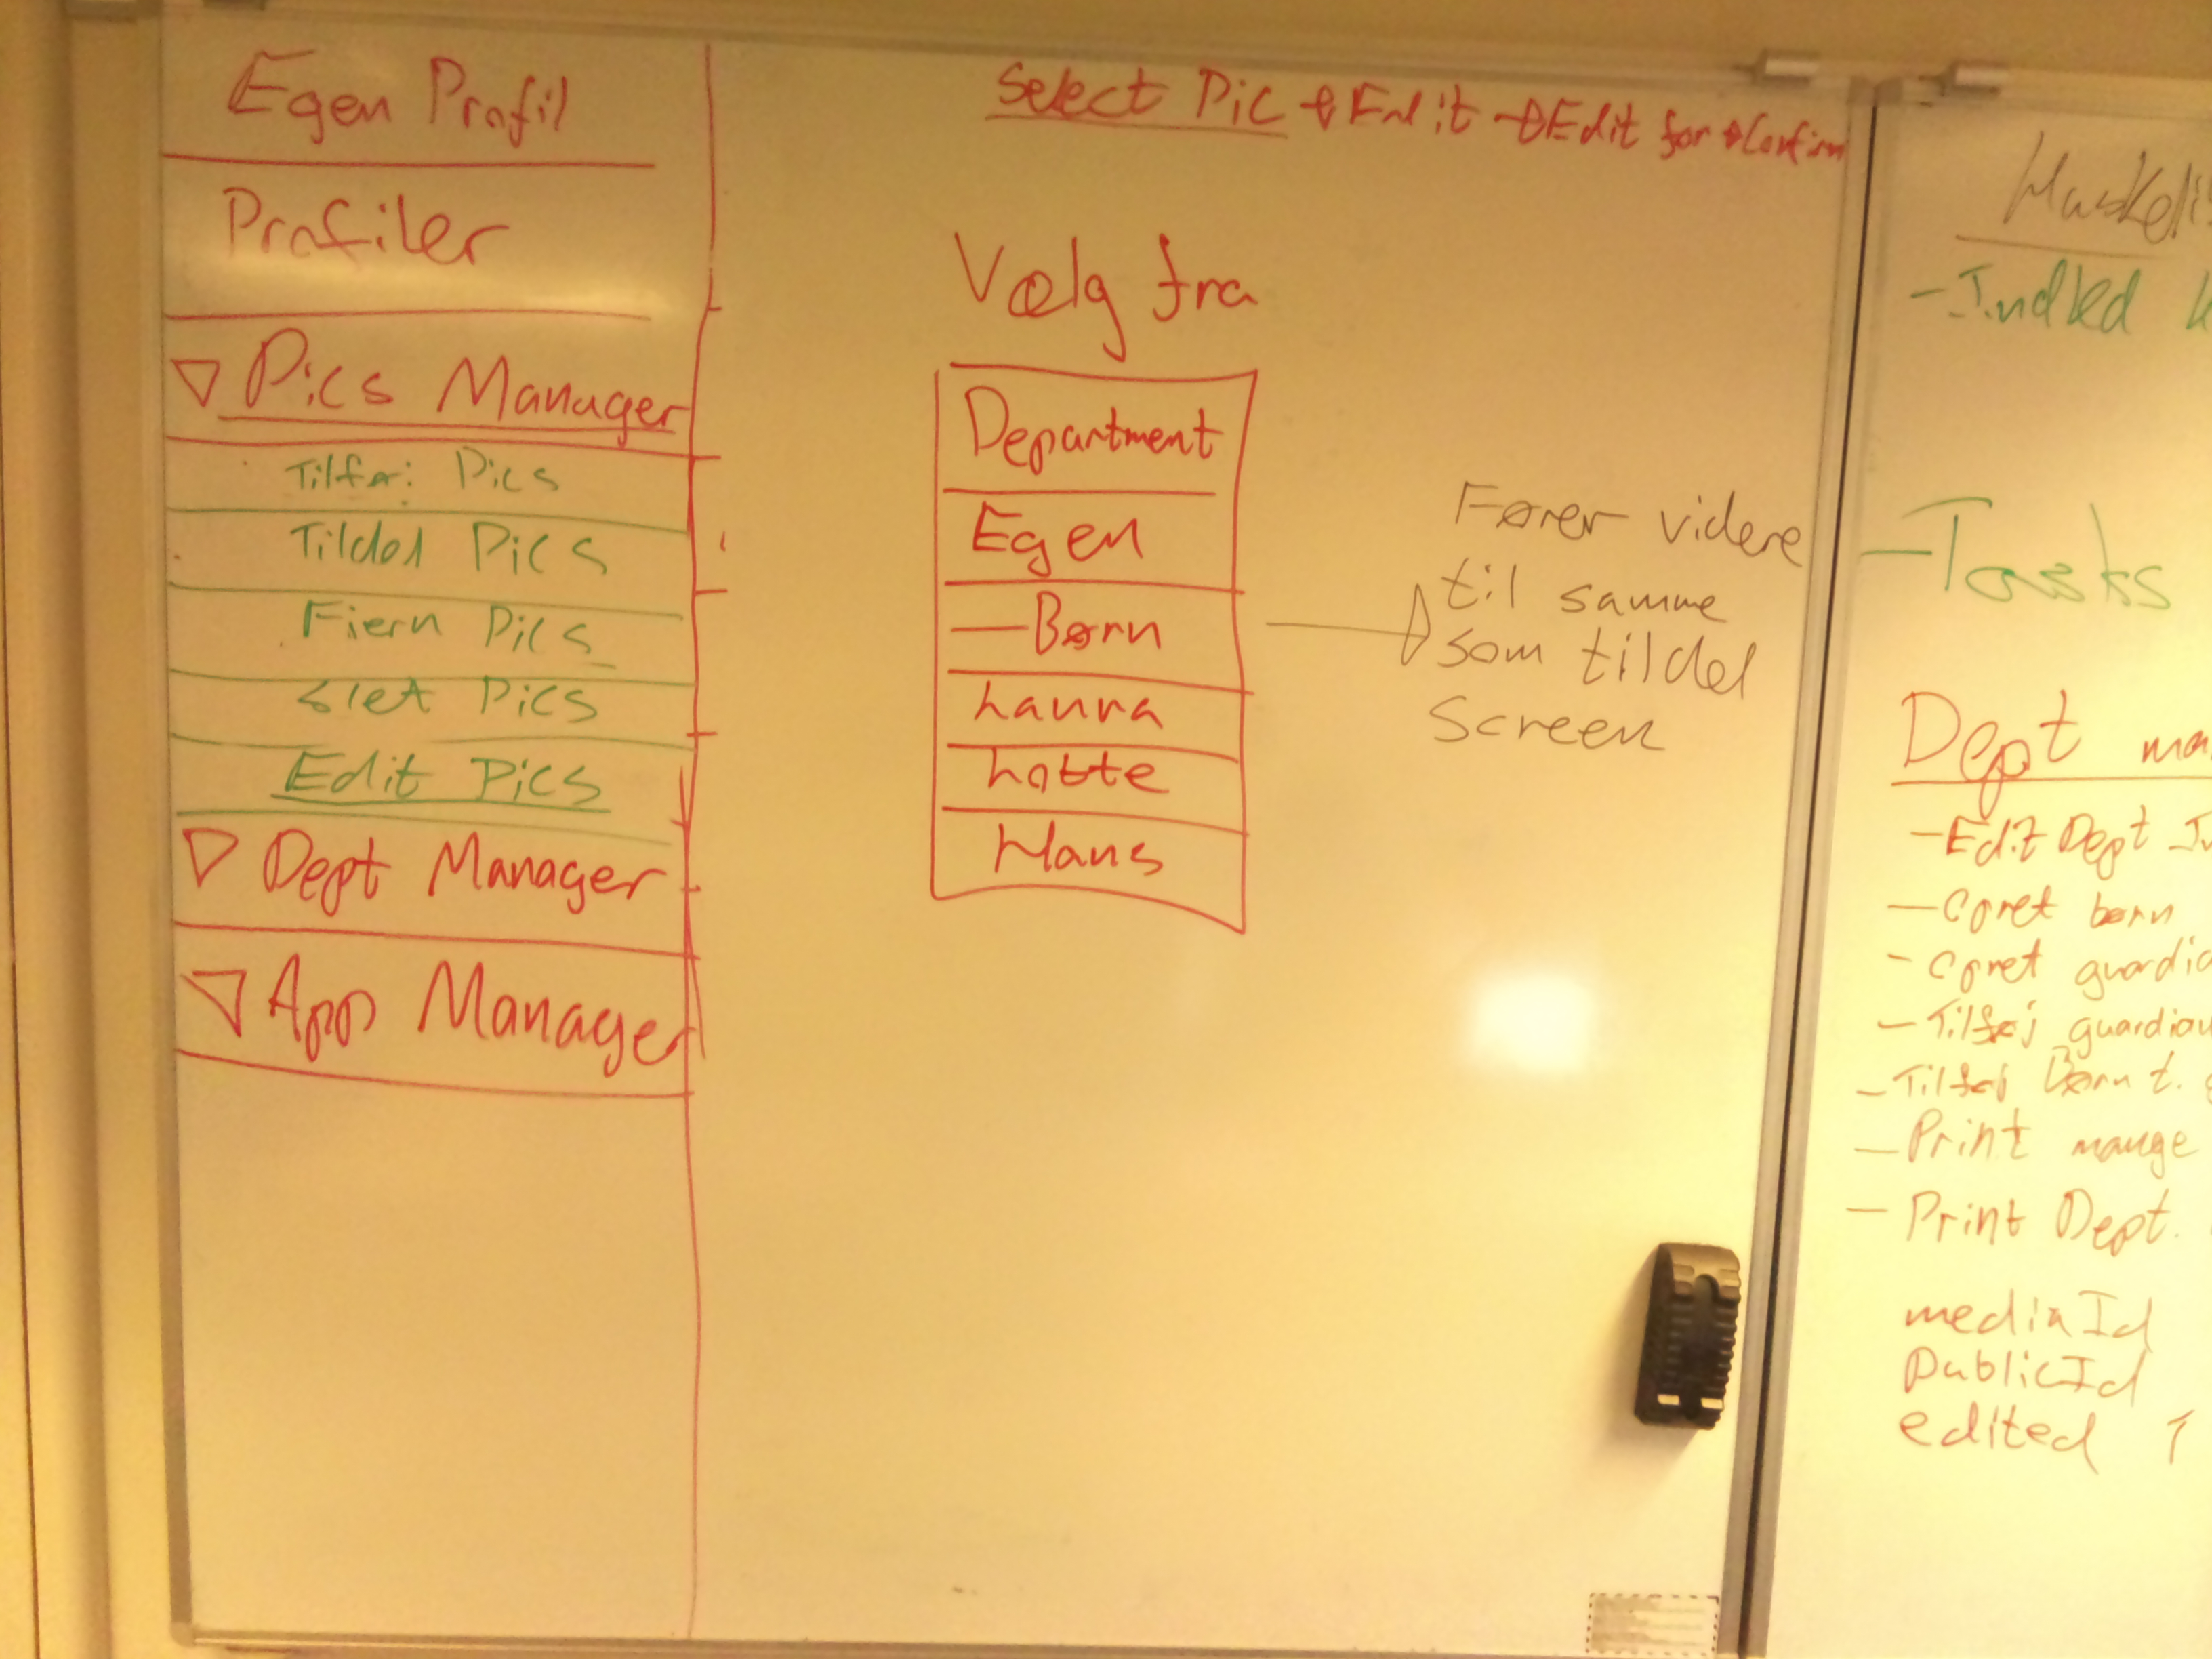 Egen Profil
Profiler
Pics Manager
Tilføj Pics
Tildel Pics
Fjern Pics
Slet Pics
Edit Pics
Dept Manager
App Manager
Select Pic → Edit → Edit for → Confirm
Vælg fra
Department
Egen
— Børn
Laura
Lotte
Hans
Fører videre
til samme
som tildel
Screen
- Tasks
Dept
- Edit Dept
- Opret børn
- Opret
- Tilføj
- Tilføj Børn t.
- Print mange
- Print Dept.
mediaId
PublicId
edited